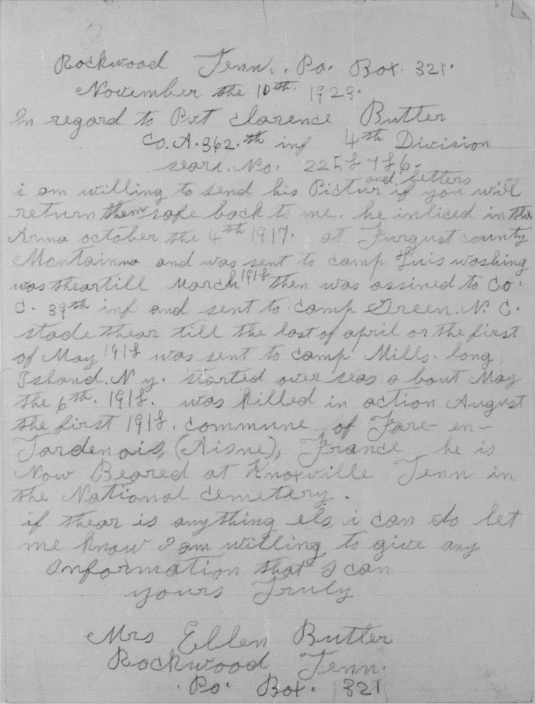 Rockwood Tenn., Po. Box. 321.
November the 10th. 1923.
In regard to Pvt Clarence Butler
Co. A. 362.th inf 4th Division
sears. No. 2258786.
and letters
i am willing to send his Pictur if you will
return them safe back to me. he inliced in the
Arma october the 4th 1917. at Furgust county
Montainna and was sent to camp Luis washing
was thear till March 1918 then was assined to Co.
C. 39th inf and sent to camp Green. N. C.
stade thear till the last of april or the first
of May 1918 was sent to camp Mills. long
Island. N y. started over seas a bout May
the 6th. 1918. was killed in action August
the first 1918. commune of Fare-en-
Tardenois, (Aisne), France he is
Now Beared at Knoxville Tenn in
the National cemetery.
if thear is anything els i can do let
me know I am willing to give any
Information that I can
yours Truly
Mrs Ellen Butler
Rockwood Tenn.
Po. Box. 321